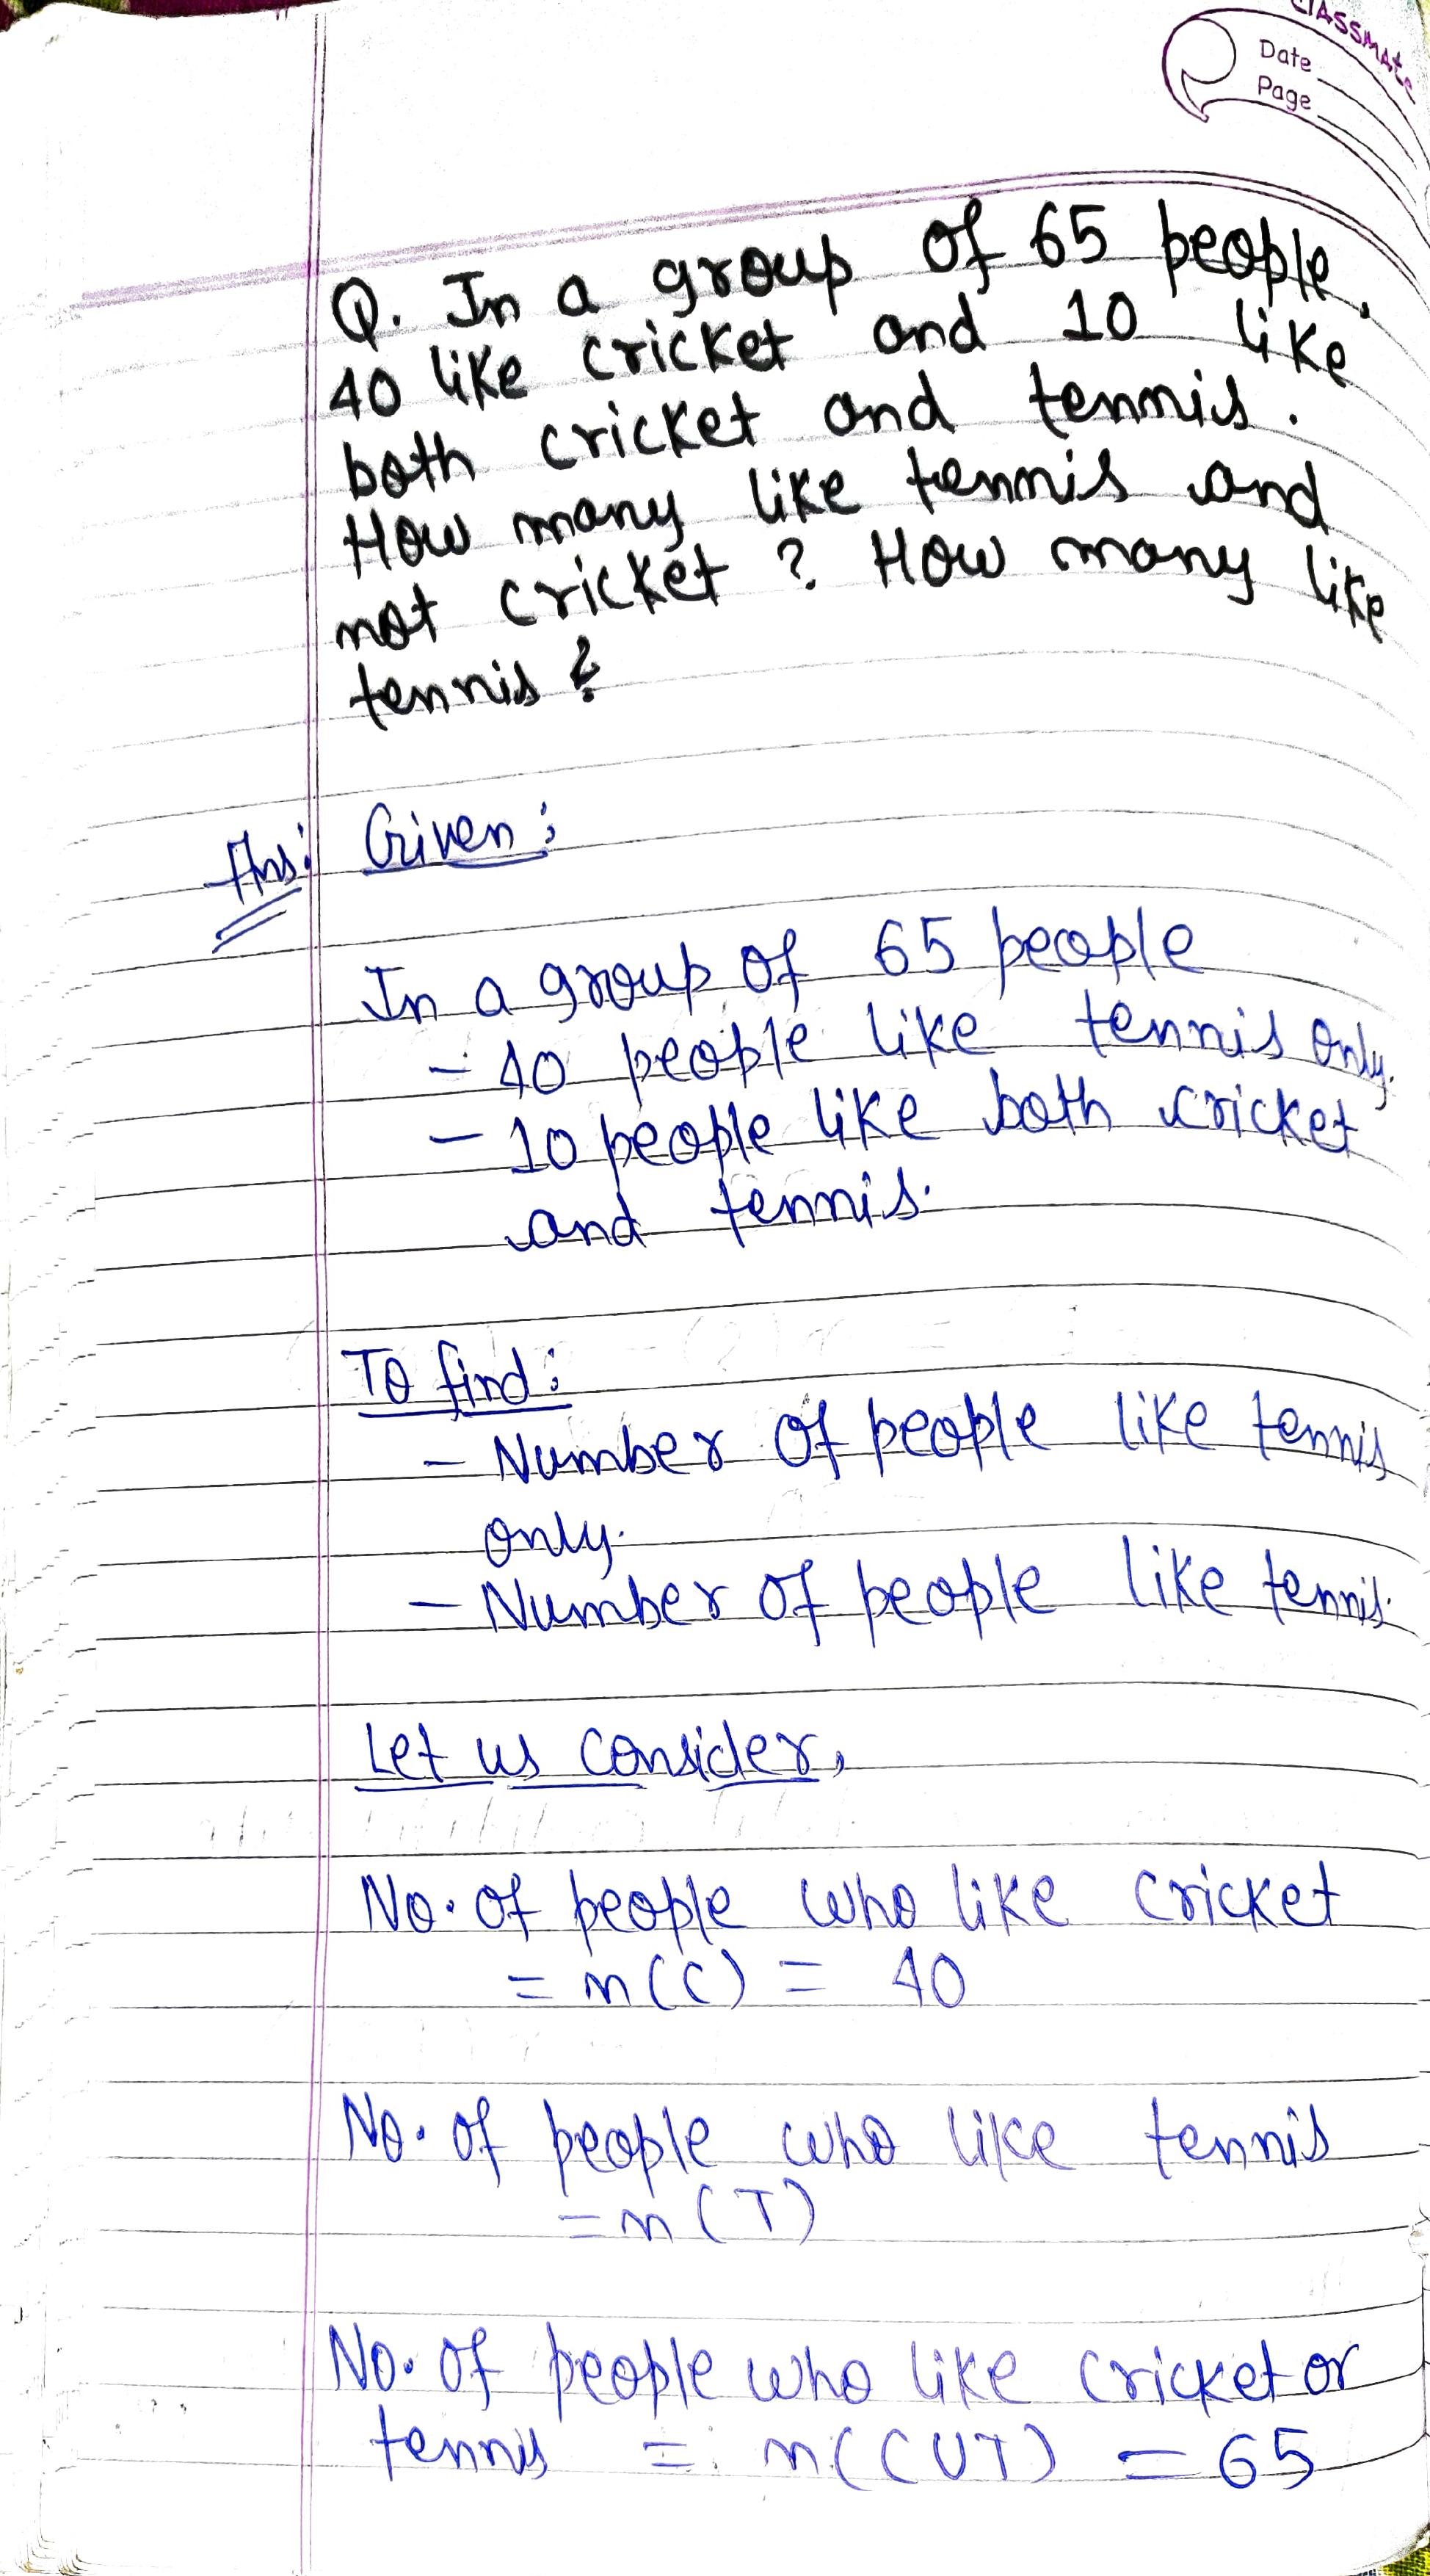 CLASSMATE
Date
Page
Q. In a group of 65 people,
40 like cricket and 10 like
both cricket and tennis.
How many like tennis and
not cricket ? How many like
tennis ?
Ans: Given:
In a group of 65 people
- 40 people like tennis only.
- 10 people like both cricket
and tennis.
To find:
- Number of people like tennis
only.
- Number of people like tennis.
Let us consider,
No. of people who like cricket
= n(C) = 40
No. of people who like tennis
= n(T)
No. of people who like cricket or
tennis = n(CUT) = 65